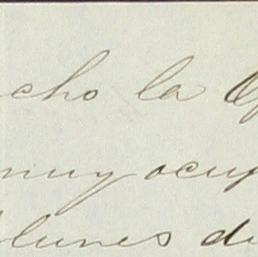 cho la
muy ocup
lunes de